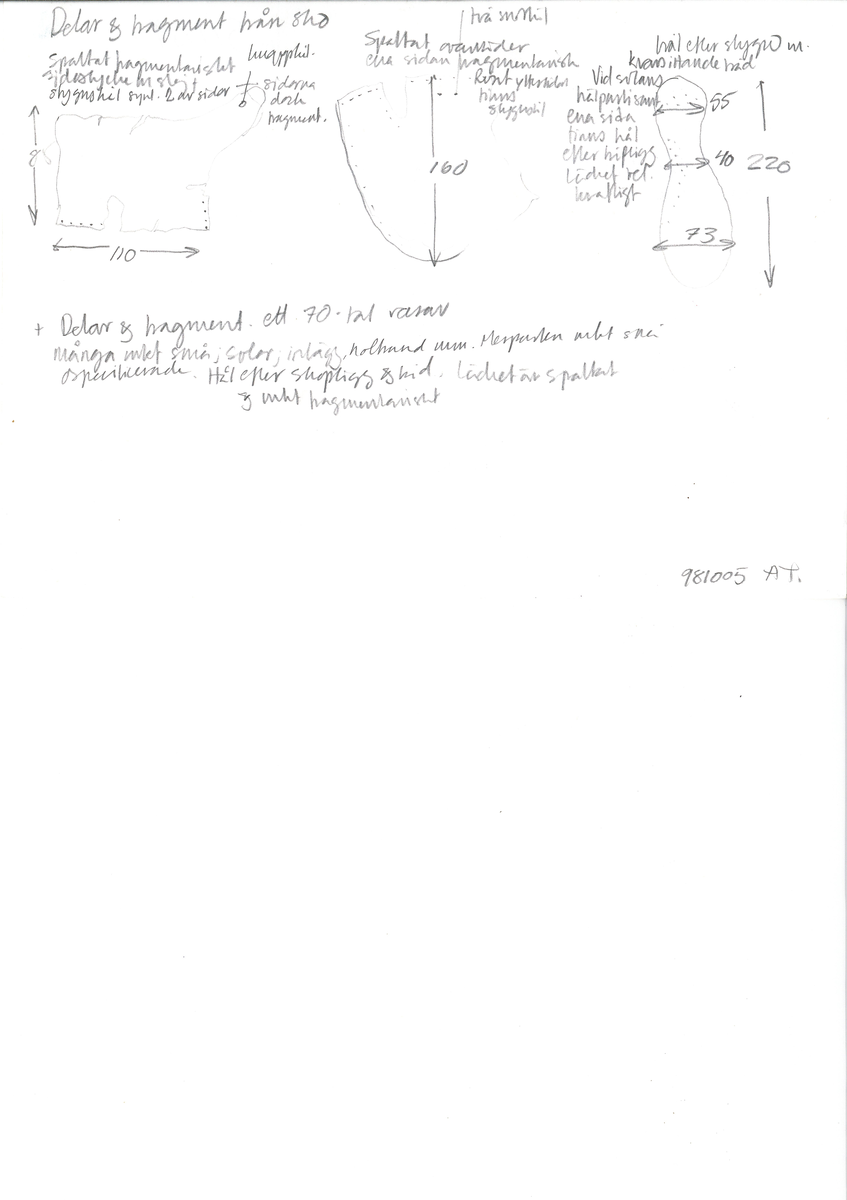 Delar & fragment från sko
Spaltat fragmentariskt
sidostycke m slejf
stygnshål synl. 2 av sidor
knapphål.
sidorna
dock
fragment.
110
två snörhål
Spaltat ovanläder
ena sidan fragmentarisk
Runt ytterkanten
finns
stygnshål
160
hål efter stygn m.
kvarsittande tråd
Vid sulans
hälparti samt
ena sida
finns hål
efter träpligg
Lädret rel.
kraftigt
55
40
73
220
+ Delar & fragment. ett 70-tal varav
många mkt små; sulor, inlägg, holkand mm. Merparten mkt små
ospecificerade. Hål efter skopligg & tråd. Lädret är spaltat
& mkt fragmentariskt
981005 AT.